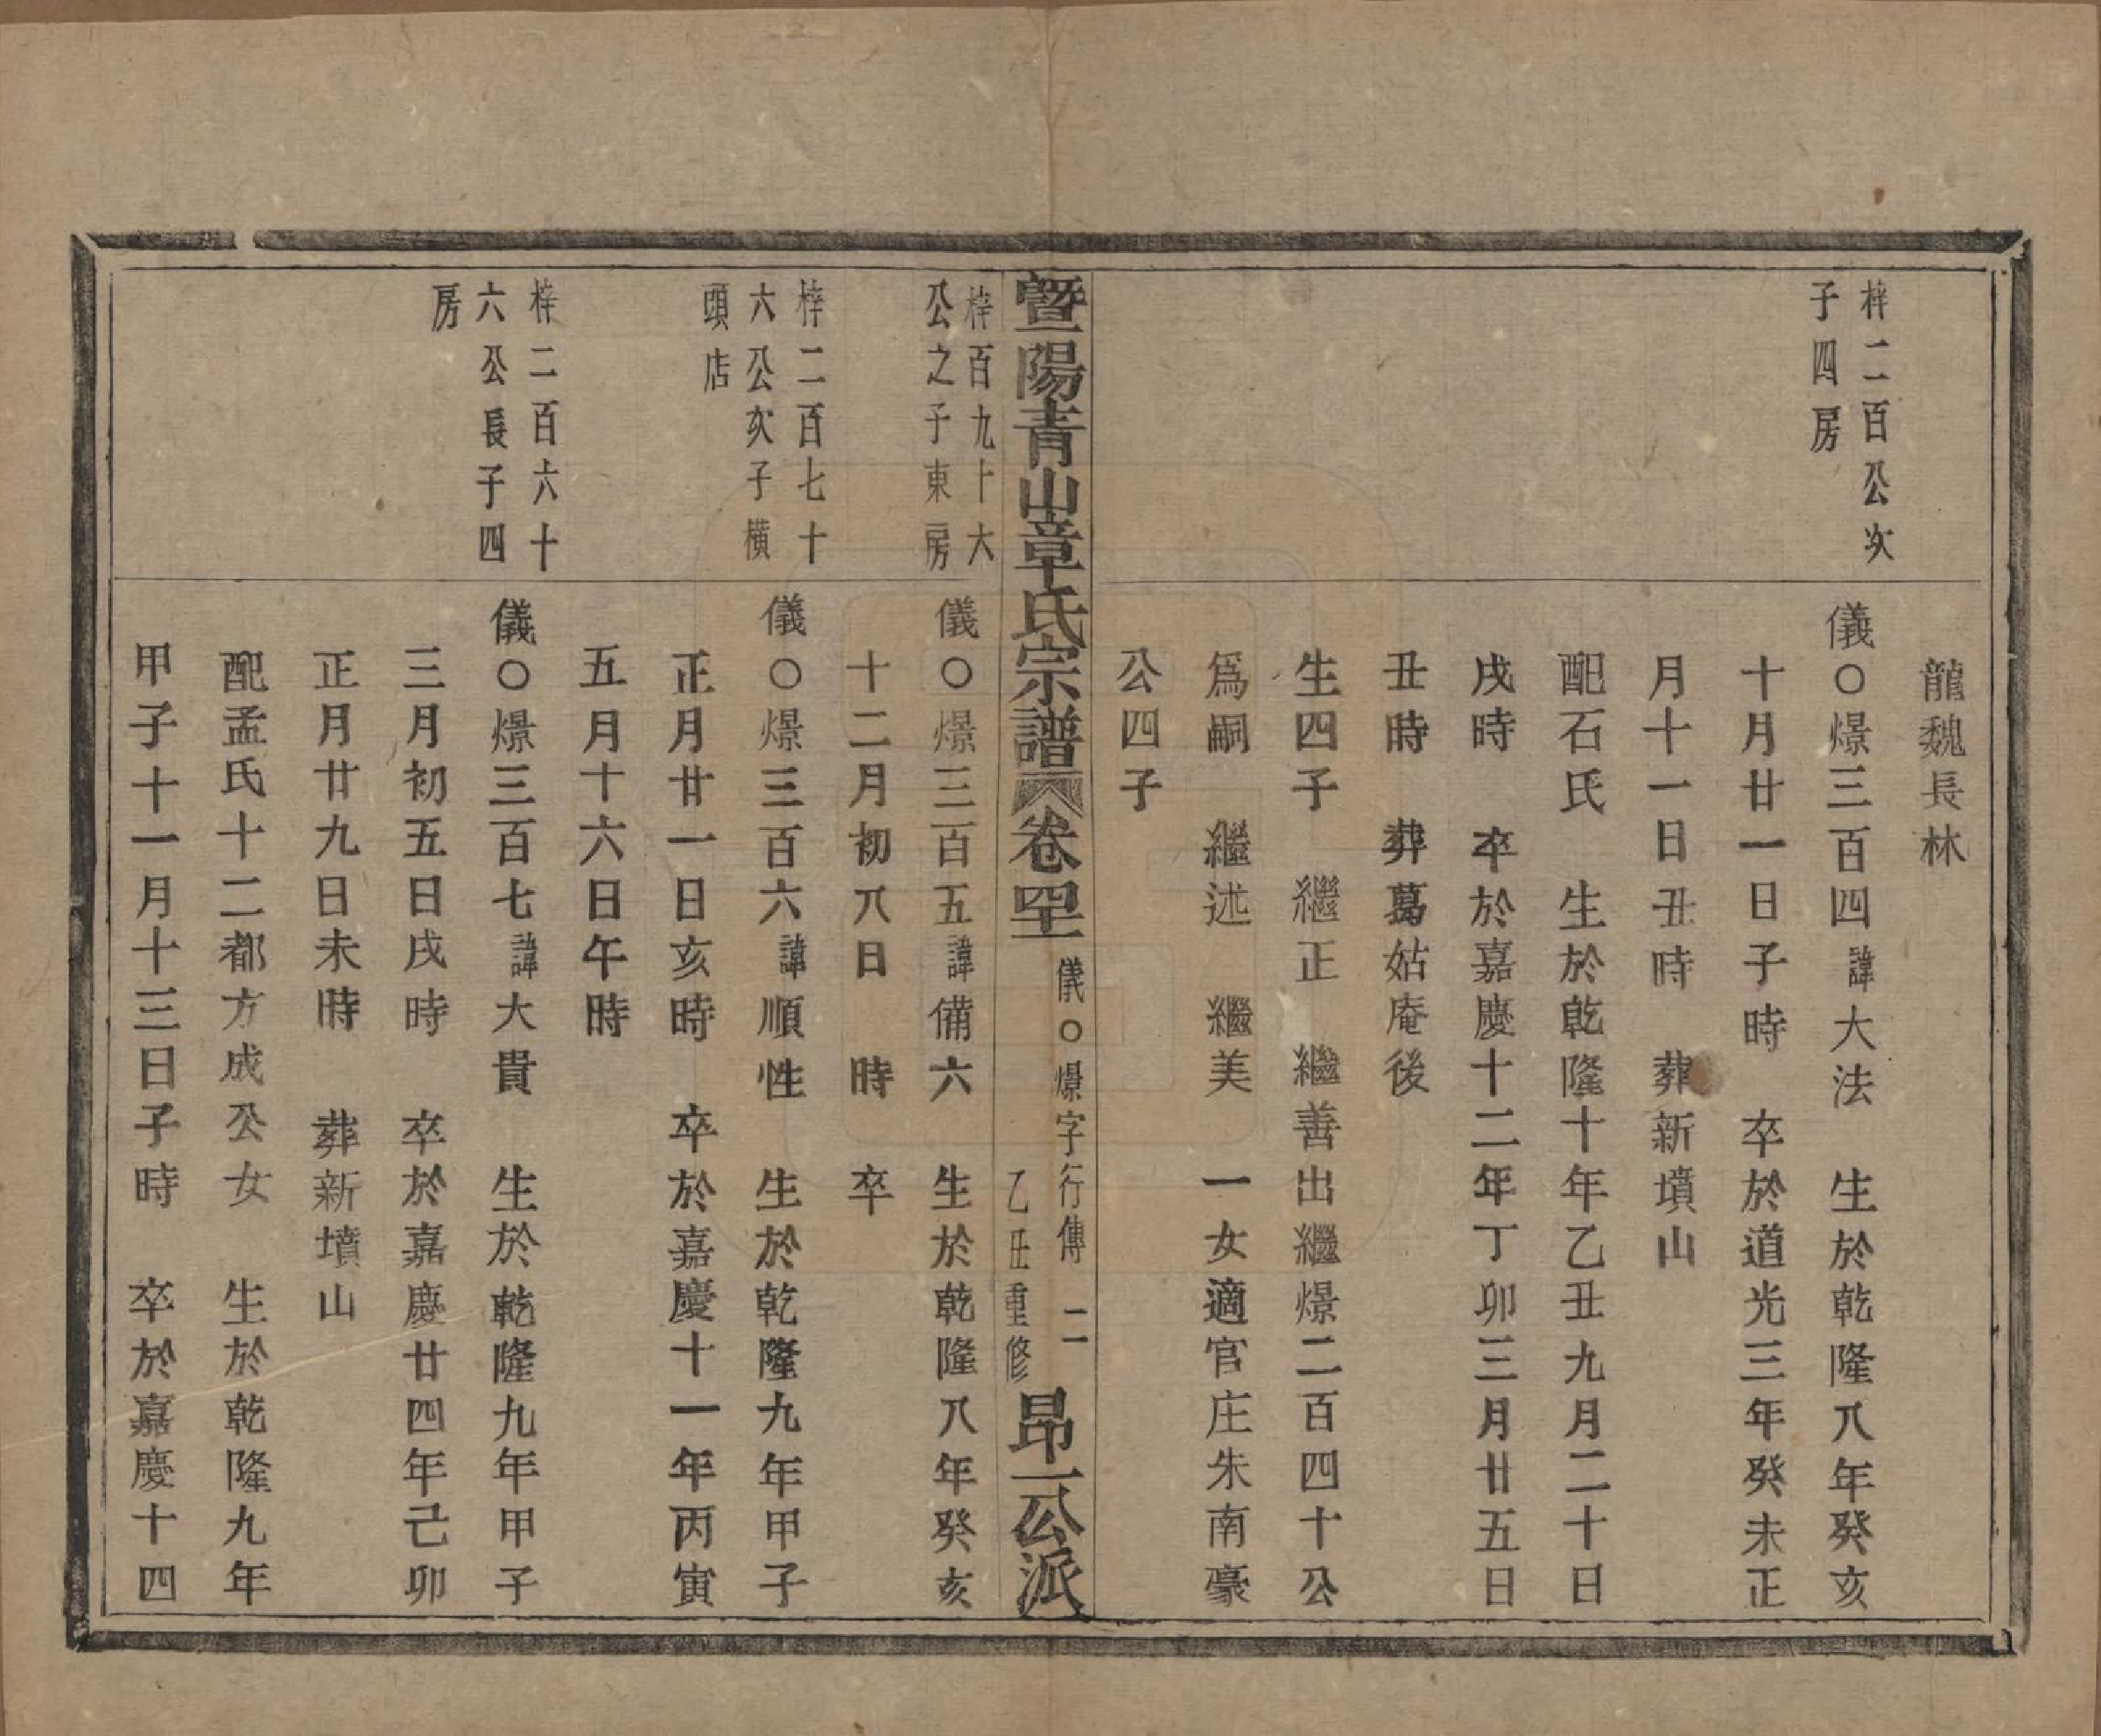 龍魏長林
梓二百公次
子四房
儀○燝三百四諱大法　生於乾隆八年癸亥
十月廿一日子時　卒於道光三年癸未正
月十一日丑時　葬新墳山
配石氏　生於乾隆十年乙丑九月二十日
戌時　卒於嘉慶十二年丁卯三月廿五日
丑時　葬葛姑庵後
生四子　繼正　繼善出繼燝二百四十公
爲嗣　繼述　繼美　一女適官庄朱南豪
公四子
暨陽青山章氏宗譜 卷四十一 儀○燝字行傳 二 乙丑重修 昂一公派
梓百九十六
公之子東房
儀○燝三百五諱備六　生於乾隆八年癸亥
十二月初八日　時　卒
梓二百七十
六公次子橫
頭店
儀○燝三百六諱順性　生於乾隆九年甲子
正月廿一日亥時　卒於嘉慶十一年丙寅
五月十六日午時
梓二百六十
六公長子四
房
儀○燝三百七諱大貴　生於乾隆九年甲子
三月初五日戌時　卒於嘉慶廿四年己卯
正月廿九日未時　葬新墳山
配孟氏十二都方成公女　生於乾隆九年
甲子十一月十三日子時　卒於嘉慶十四